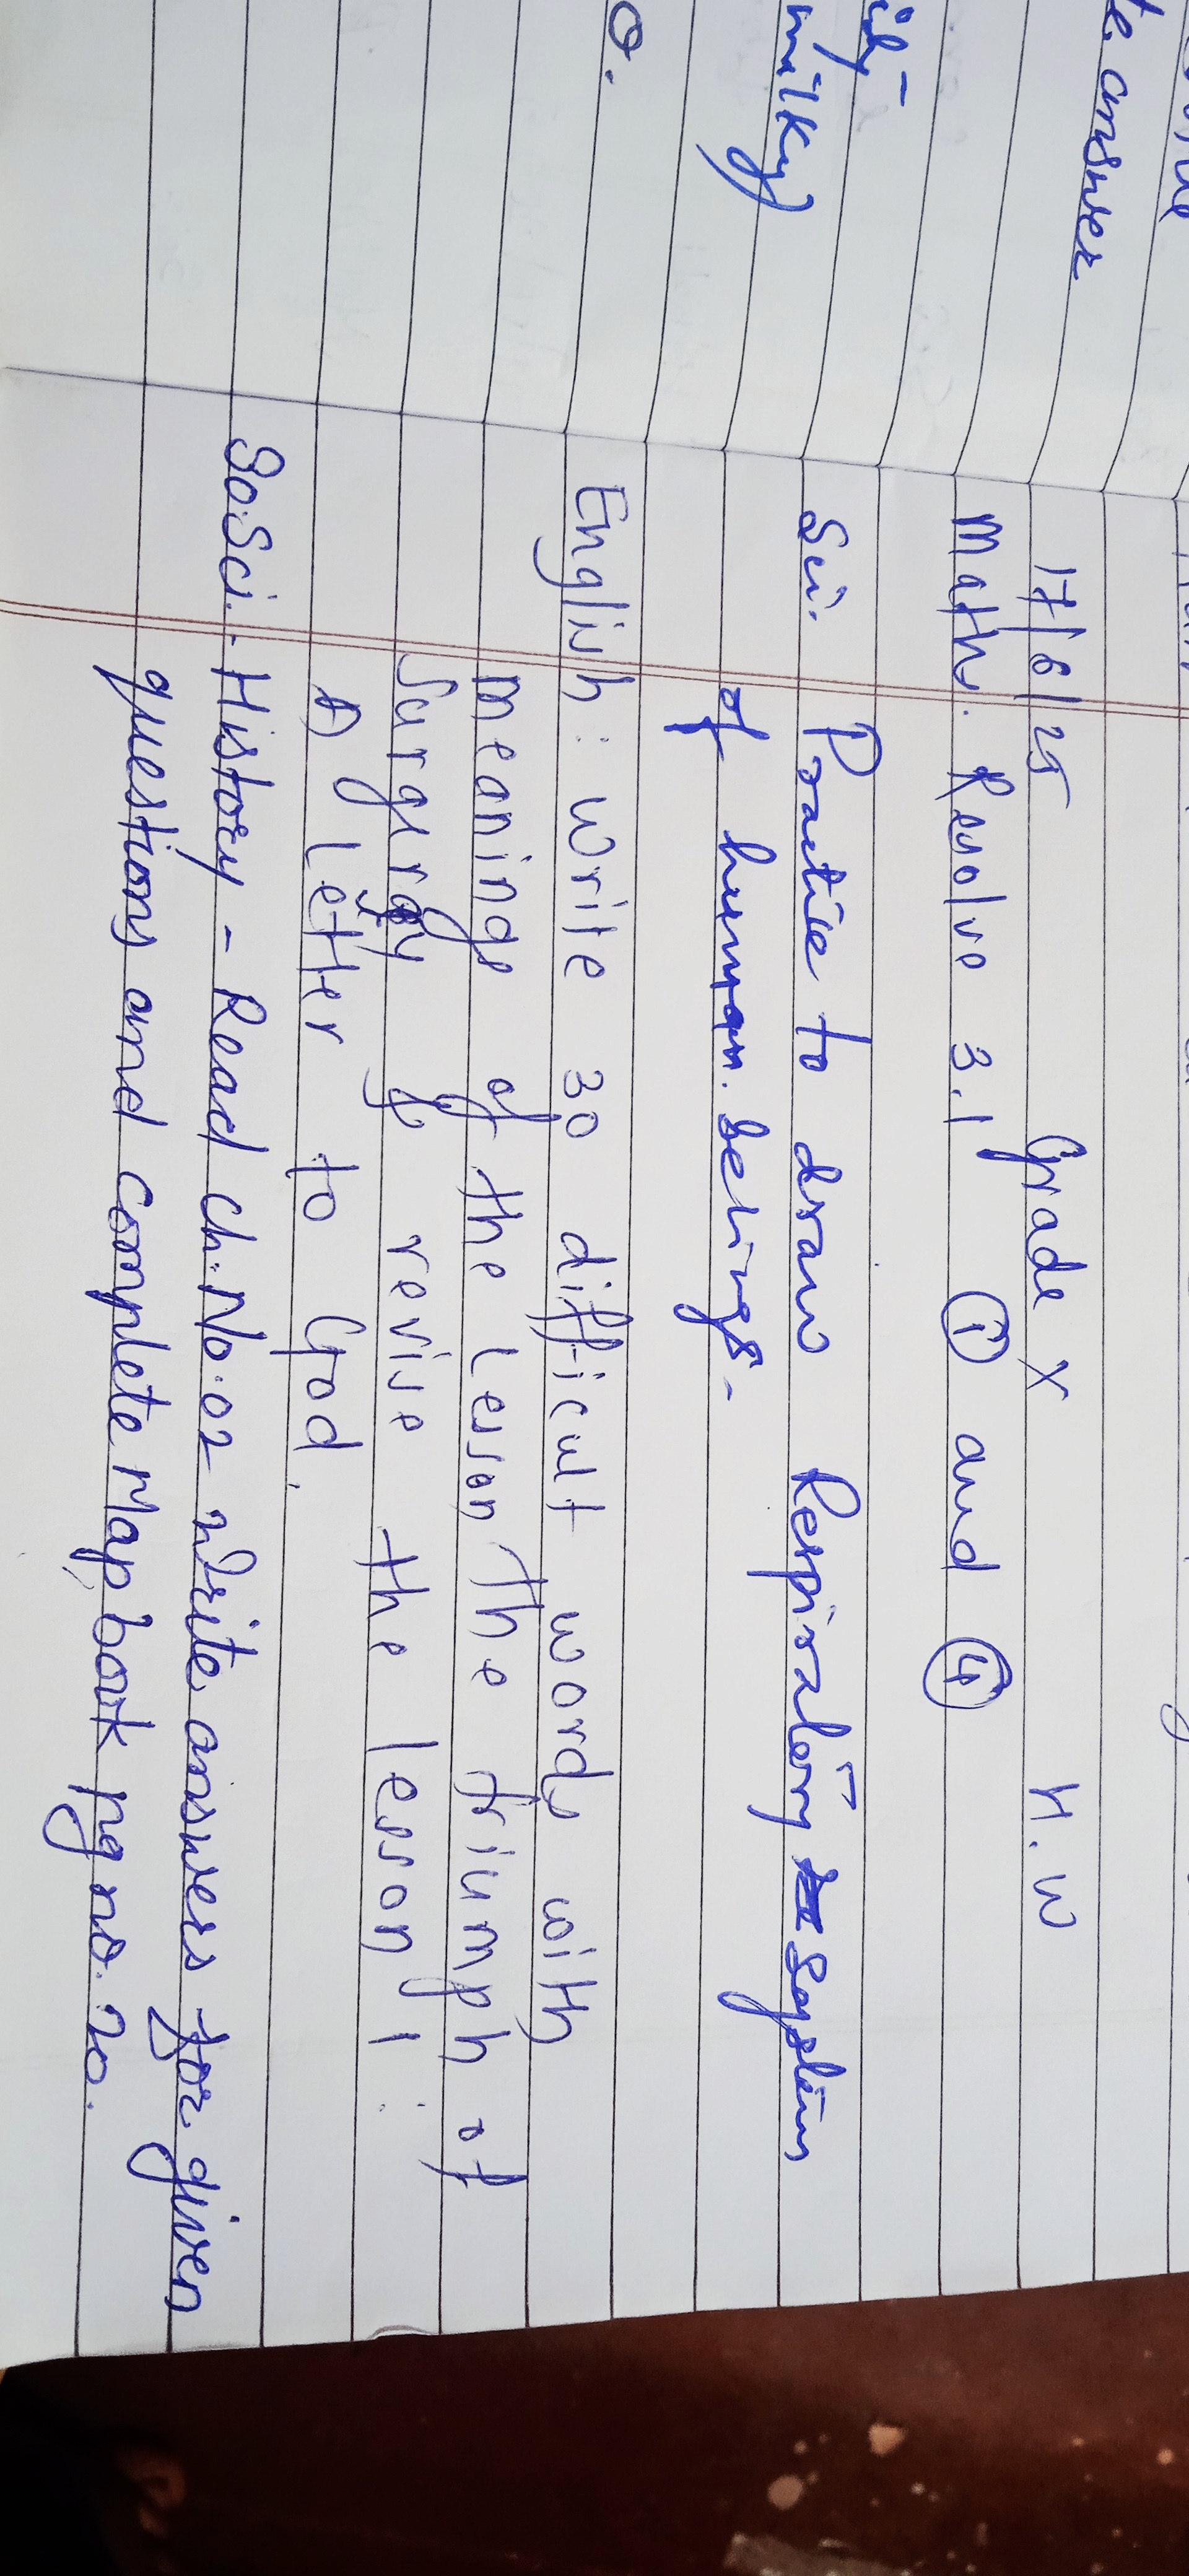 te answer
milky)
0.
17/6/25 Grade X H.W
Math. Resolve 3.1 ① and ④
Sci. Practice to draw Respiratory System
of human beings.
English: Write 30 difficult words with
meanings of the lesson The triumph of
Surgery & revise the lesson 1.
A Letter to God.
So.Sci.-History - Read ch.No.02 write answers for given
questions and complete Map book pg no. 20.